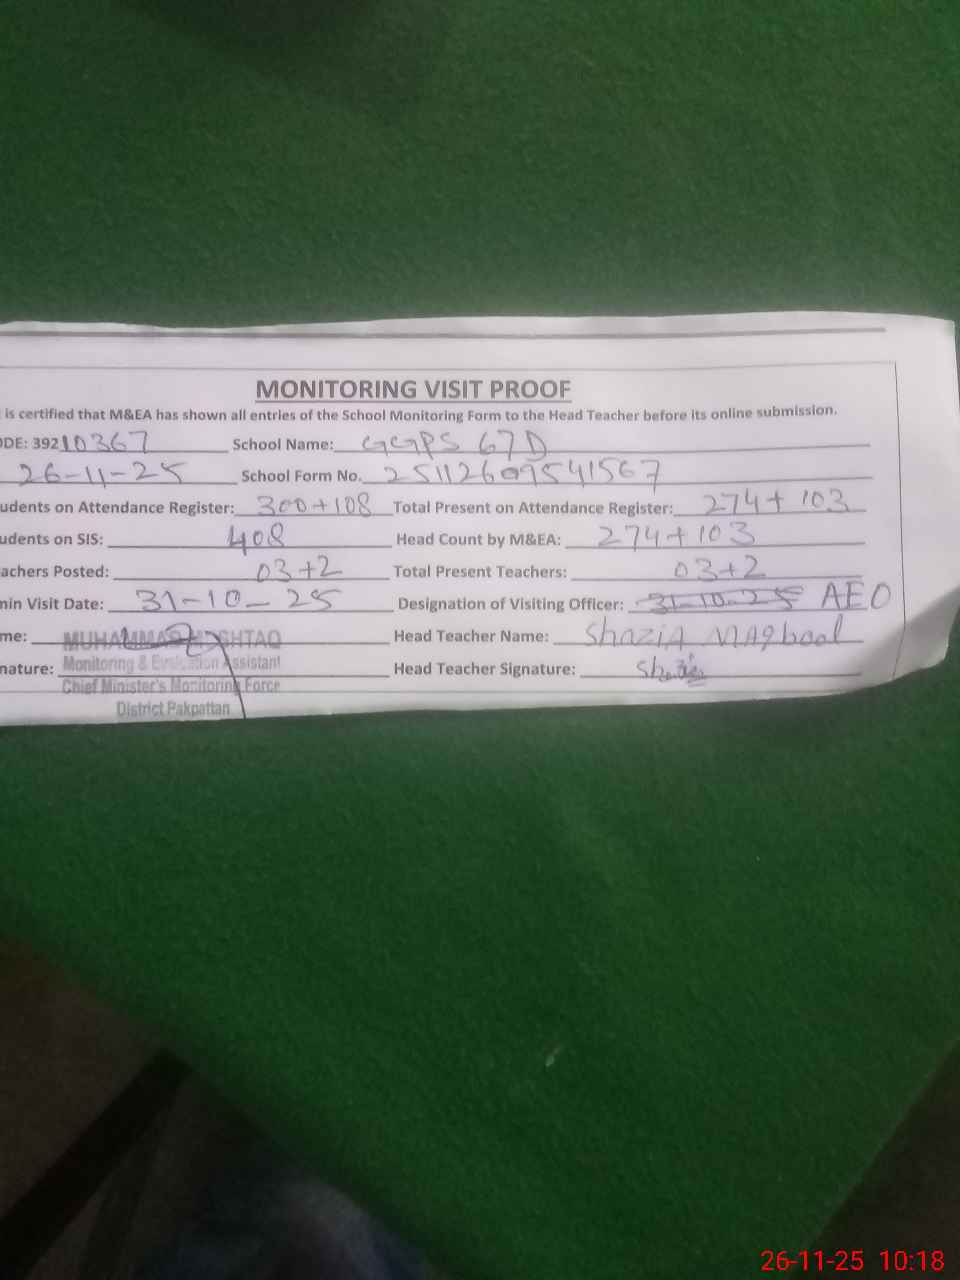 MONITORING VISIT PROOF
is certified that M&EA has shown all entries of the School Monitoring Form to the Head Teacher before its online submission.
ODE: 39210367 School Name: GGPS 67D
26-11-25 School Form No. 25112609541567
udents on Attendance Register: 300+108 Total Present on Attendance Register: 274+103
udents on SIS: 408 Head Count by M&EA: 274+103
achers Posted: 03+2 Total Present Teachers: 03+2
min Visit Date: 31-10-25 Designation of Visiting Officer: 31-10-25 AEO
me: MUHAMMAD Head Teacher Name: ShaziA MAqbool
nature: Monitoring & Evaluation Assistant Head Teacher Signature: Shazia
Chief Minister's Monitoring Force
District Pakpattan
26-11-25 10:18